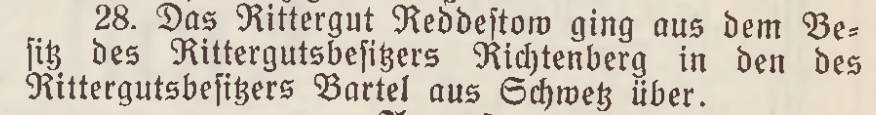 28. Das Rittergut Reddestow ging aus dem Be-
sitz des Rittergutsbesitzers Richtenberg in den des
Rittergutsbesitzers Bartel aus Schwetz über.